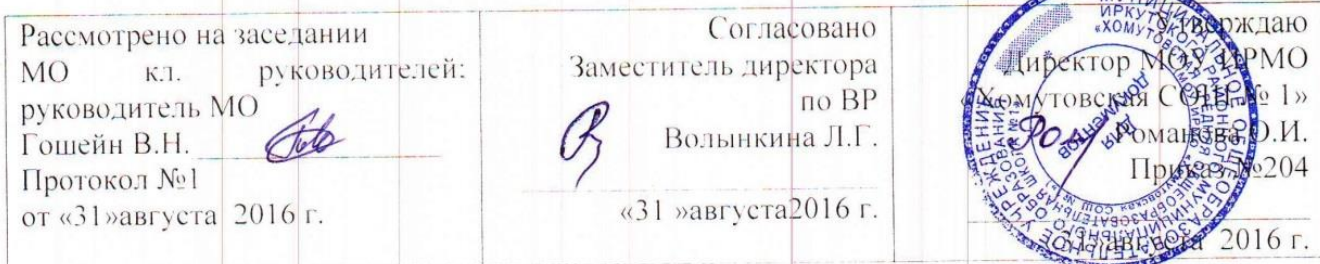 Рассмотрено на заседании
МО кл. руководителей:
руководитель МО
Гошейн В.Н.
Протокол №1
от «31»августа 2016 г.
Согласовано
Заместитель директора
по ВР
Волынкина Л.Г.
«31 »августа2016 г.
Утверждаю
Директор МОУ ИРМО
«Хомутовская СОШ № 1»
Романова О.И.
Приказ №204
«31»августа 2016 г.
ДЛЯ
ДОКУМЕНТОВ